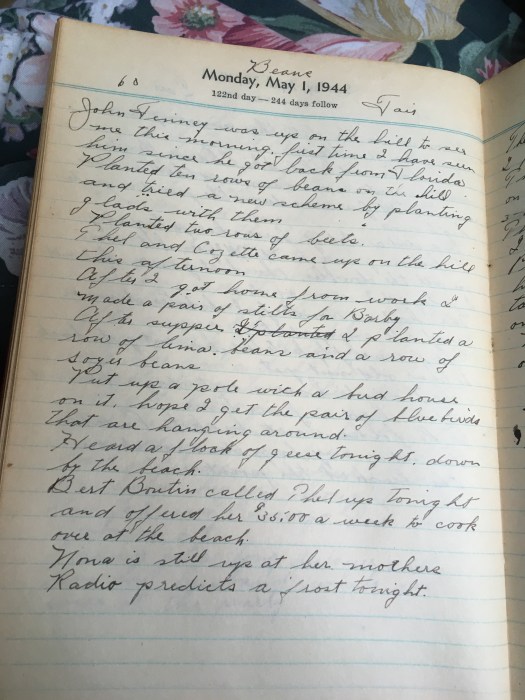 Beans
Monday, May 1, 1944
122nd day—244 days follow
60
Fair
John Finney was up on the hill to see
me this morning. first time I have seen
him since he got back from Florida
Planted ten rows of beans on the hill
and tried a new scheme by planting
glads with them
Planted two rows of beets.
Phel and Cozette came up on the hill
this afternoon
After I got home from work I
made a pair of stilts for Barby
After supper I planted I planted a
row of lima beans and a row of
soya beans
Put up a pole with a bird house
on it. hope I get the pair of bluebirds
that are hanging around.
Heard a flock of geese tonight. down
by the beach.
Bert Boutin called Phel up tonight
and offered her $35.00 a week to cook
over at the beach.
Nona is still up at her mothers
Radio predicts a frost tonight.